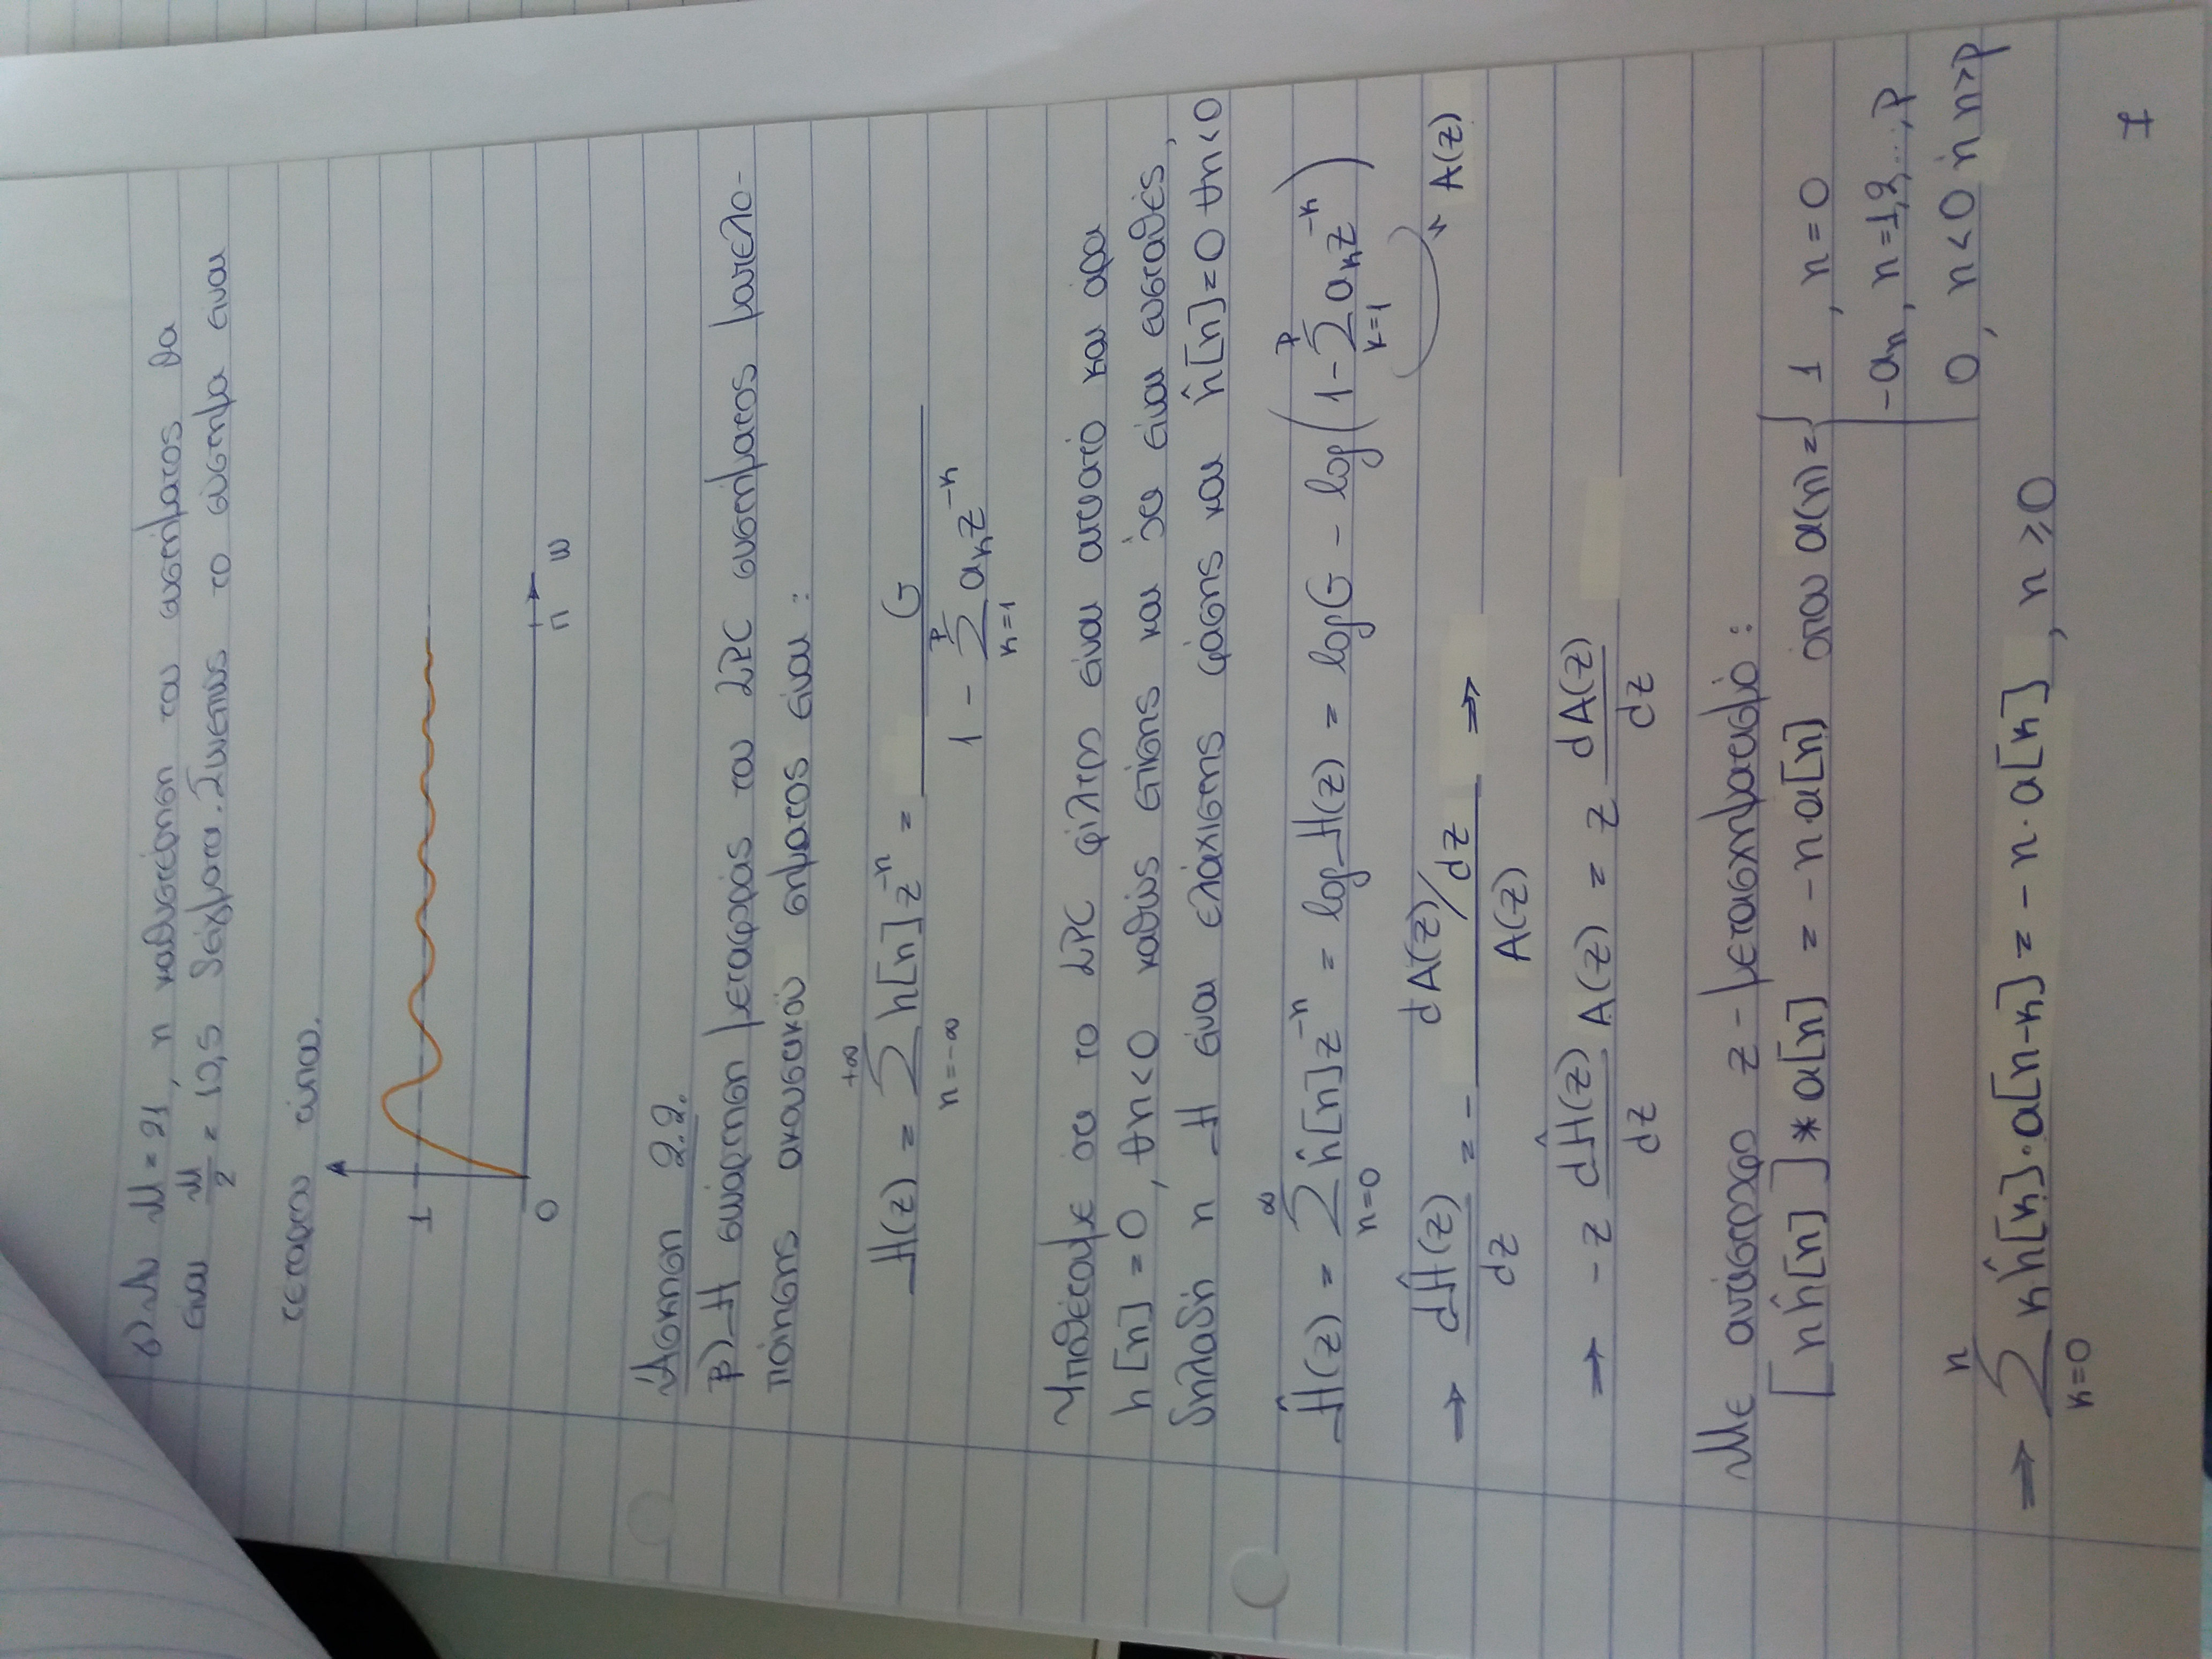 γ) Αν M = 21, η καθυστέρηση του συστήματος θα
είναι M/2 = 10,5 δείγματα. Συνεπώς το σύστημα είναι
τετάρτου τύπου.
1
0 π ω
Άσκηση 2.2.
β) Η συνάρτηση μεταφοράς του LPC συστήματος μοντελο-
ποίησης ακουστικού σήματος είναι :
H(z) = Σ_{n=-∞}^{+∞} h[n] z^{-n} = G / (1 - Σ_{k=1}^{P} a_k z^{-k})
Υποθέτουμε ότι το LPC φίλτρο είναι αιτιατό και άρα
h[n] = 0, ∀n<0 καθώς επίσης και ότι είναι ευσταθές,
δηλαδή η H είναι ελάχιστης φάσης και ĥ[n]=0 ∀n<0
Ĥ(z) = Σ_{n=0}^{∞} ĥ[n] z^{-n} = log H(z) = log G - log(1 - Σ_{k=1}^{P} a_k z^{-k})
⇒ dĤ(z)/dz = - (dA(z)/dz) / A(z) ⇒ A(z)
⇒ -z dĤ(z)/dz A(z) = z dA(z)/dz
Με αντίστροφο z-μετασχηματισμό :
[nĥ[n]] * a[n] = -n·a[n] όπου a(n) = { 1 , n = 0
-a_n, n = 1,2,...,p
0, n<0 ή n>p
⇒ Σ_{k=0}^{n} kĥ[k]·a[n-k] = -n·a[k] , n ≥ 0
7